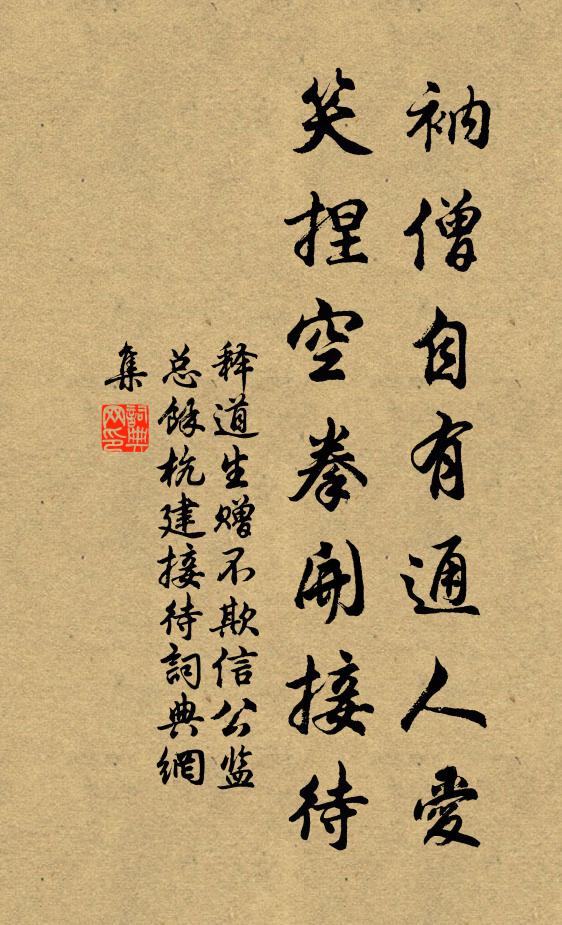 衲僧自有通人爱
笑捏空拳開接待
释道生赠不欺信公监
总馀杭建接待詞典網
集
詞典
网印